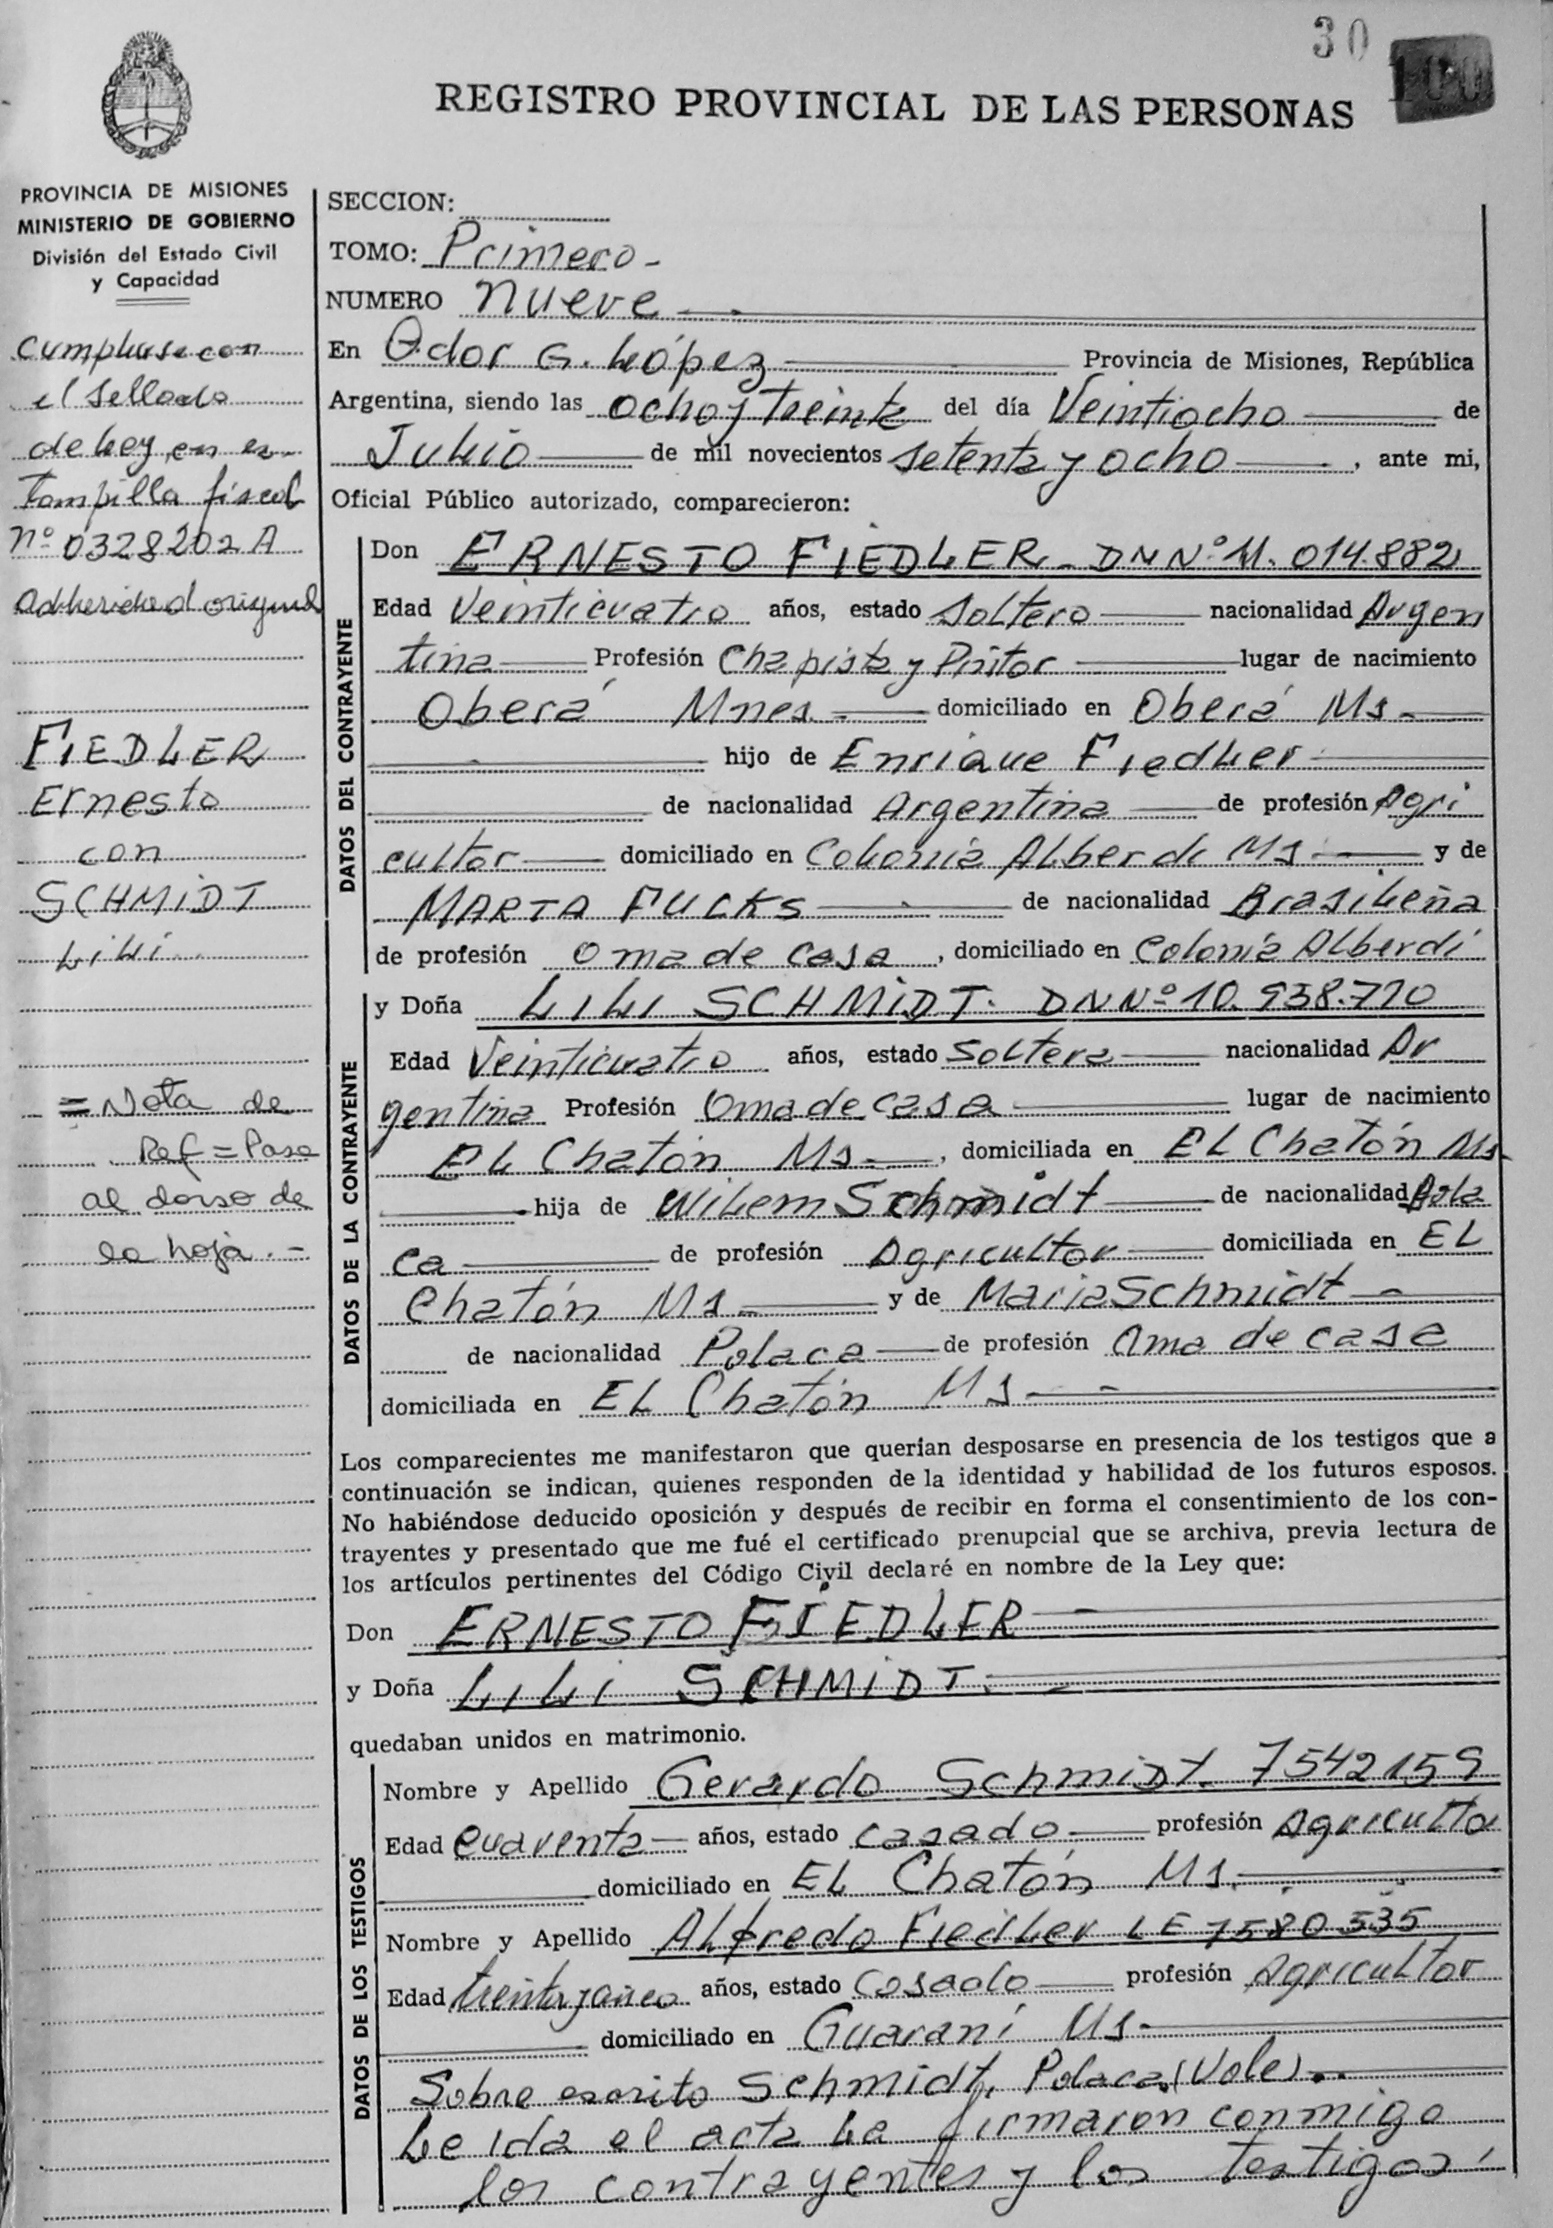 30
100
REGISTRO PROVINCIAL DE LAS PERSONAS
PROVINCIA DE MISIONES
MINISTERIO DE GOBIERNO
División del Estado Civil
y Capacidad
Cumplase con
el Sellado
de Ley en es-
tampilla fiscal
Nº 0328202 A
adherida al original
FIEDLER
Ernesto
con
SCHMIDT
Lili
= Nota de
Ref = Pasa
al dorso de
la hoja. -
SECCION:
TOMO: Primero -
NUMERO Nueve
En Odor G. López Provincia de Misiones, República
Argentina, siendo las ocho y Treinta del día Veintiocho de
Julio de mil novecientos setenta y ocho , ante mi,
Oficial Público autorizado, comparecieron:
DATOS DEL CONTRAYENTE
Don ERNESTO FIEDLER - DN Nº 11.014.882
Edad Veinticuatro años, estado Soltero nacionalidad Argen
tina Profesión Chapista y Pintor lugar de nacimiento
Oberá Mnes. domiciliado en Oberá Ms.
hijo de Enrique Fiedler
de nacionalidad Argentina de profesión Agri
cultor domiciliado en Colonia Alberdi Ms y de
MARTA FUCKS de nacionalidad Brasileña
de profesión Ama de casa , domiciliado en Colonia Alberdi
DATOS DE LA CONTRAYENTE
y Doña LILI SCHMIDT. DN Nº 10.938.770
Edad Veinticuatro años, estado Soltera nacionalidad Ar
gentina Profesión Ama de casa lugar de nacimiento
EL Chatón Ms , domiciliada en EL Chatón Ms
hija de Wilem Schmidt de nacionalidad Pola
ca de profesión Agricultor domiciliada en EL
Chatón Ms y de Maria Schmidt
de nacionalidad Polaca de profesión Ama de casa
domiciliada en EL Chatón Ms
Los comparecientes me manifestaron que querían desposarse en presencia de los testigos que a
continuación se indican, quienes responden de la identidad y habilidad de los futuros esposos.
No habiéndose deducido oposición y después de recibir en forma el consentimiento de los con-
trayentes y presentado que me fué el certificado prenupcial que se archiva, previa lectura de
los artículos pertinentes del Código Civil declaré en nombre de la Ley que:
Don ERNESTO FIEDLER
y Doña LILI SCHMIDT.
quedaban unidos en matrimonio.
DATOS DE LOS TESTIGOS
Nombre y Apellido Gerardo Schmidt. 7542159
Edad Cuarenta años, estado casado profesión Agriculto
domiciliado en EL Chatón Ms.
Nombre y Apellido Alfredo Fiedler LE 7580535
Edad treinta y cinco años, estado Casado profesión Agricultor
domiciliado en Guaraní Ms.
Sobre escrito Schmidt, Polaca (Vale)..
Leida el acta La firmaron conmigo
los contrayentes y los testigos